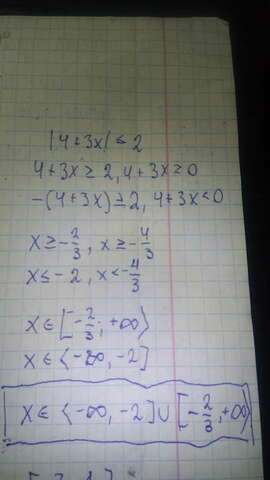 |4+3x| ≤ 2
4+3x ≥ 2, 4+3x ≥ 0
-(4+3x) ≥ 2, 4+3x < 0
x ≥ -2/3, x ≥ -4/3
x ≤ -2, x < -4/3
x ∈ [-2/3, +∞⟩
x ∈ ⟨-∞, -2]
x ∈ ⟨-∞, -2] ∪ [-2/3, +∞⟩